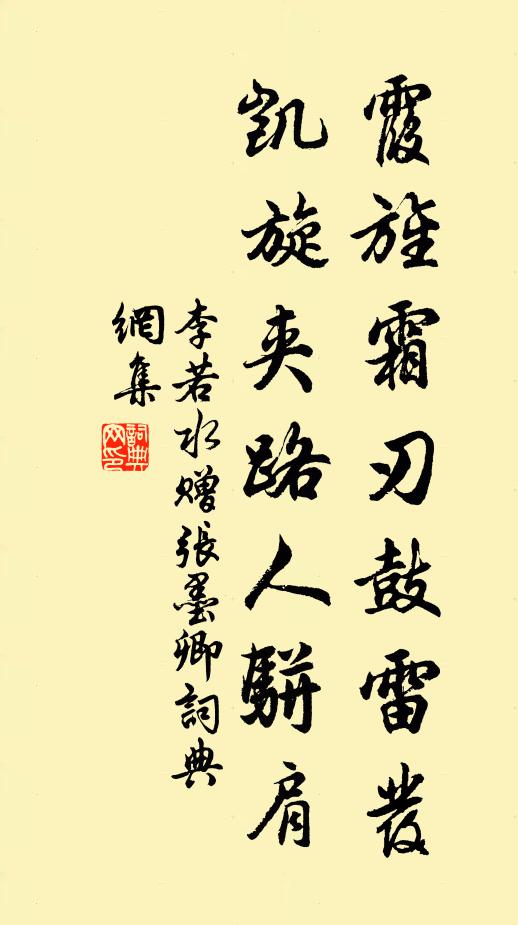 霞旌霜刃鼓雷發
凱旋夾路人駢肩
李若水贈張墨卿詞典
網集
詞典網印